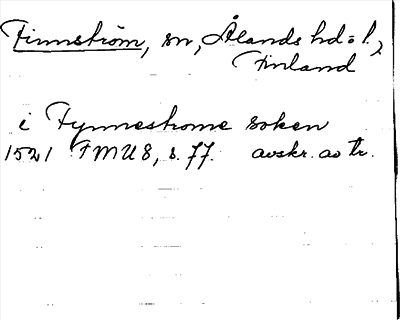 Finnström, sn, Ålands hd o l.,
Finland
i Fynnestrome soken
1521 FMU 8, s. 77. avskr. av tr.